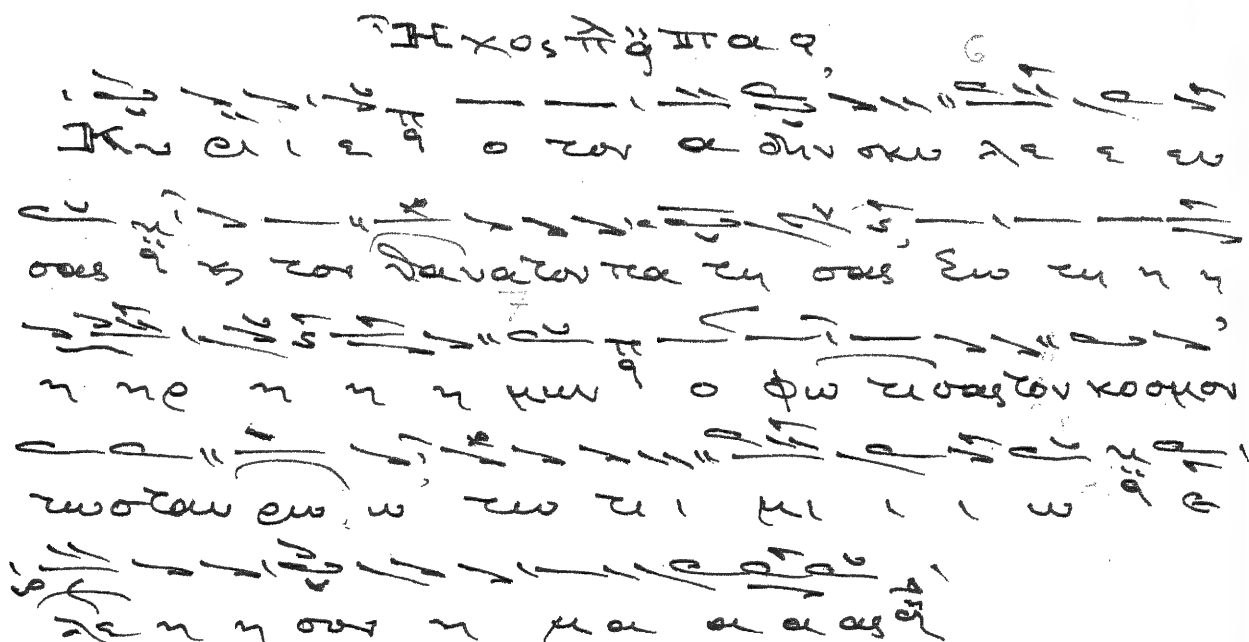 Ἦχος πλ ᾳ Πα
Κυ ρι ι ε ο τον α δην σκυ λε ε ευ
σας ϗ τον θα να τον πα τη σας Σω τη η η
η ηρ η η η μων ο φω τι σας τον κοσμον
τω σταυ ρω ω τω τι ι μι ι ι ω Ε
λε η η σον η μα α α α ας